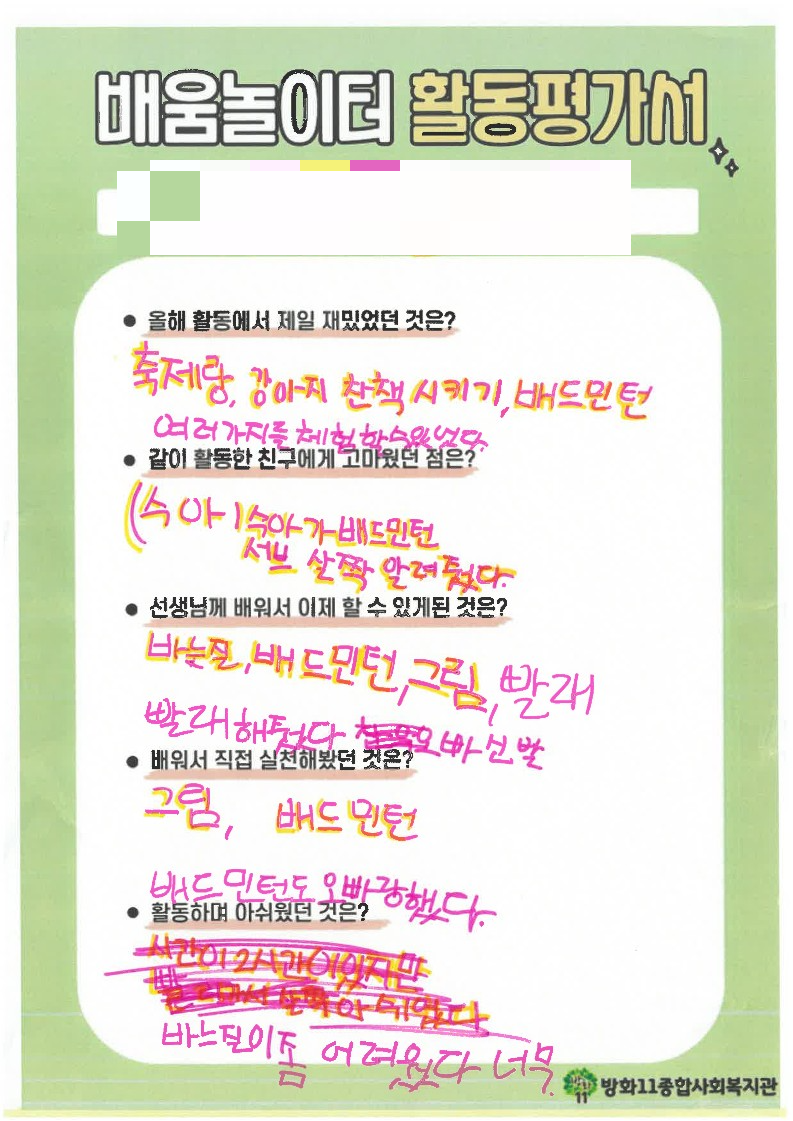 배움놀이터 활동평가서
● 올해 활동에서 제일 재밌었던 것은?
축제랑, 강아지 산책 시키기, 배드민턴
여러가지를 체험할수있었다.
● 같이 활동한 친구에게 고마웠던 점은?
(수아) 수아가 배드민턴
서브 살짝 알려줬다.
● 선생님께 배워서 이제 할 수 있게된 것은?
바늘질, 배드민턴, 그림, 빨래
빨래해줬다 오빠 신발
● 배워서 직접 실천해봤던 것은?
그림, 배드민턴
배드민턴도 오빠랑했다.
● 활동하며 아쉬웠던 것은?
시간이 2시간이있지만
살짝 아쉬웠다
바느질이 좀 어려웠다 너무.
방화11종합사회복지관